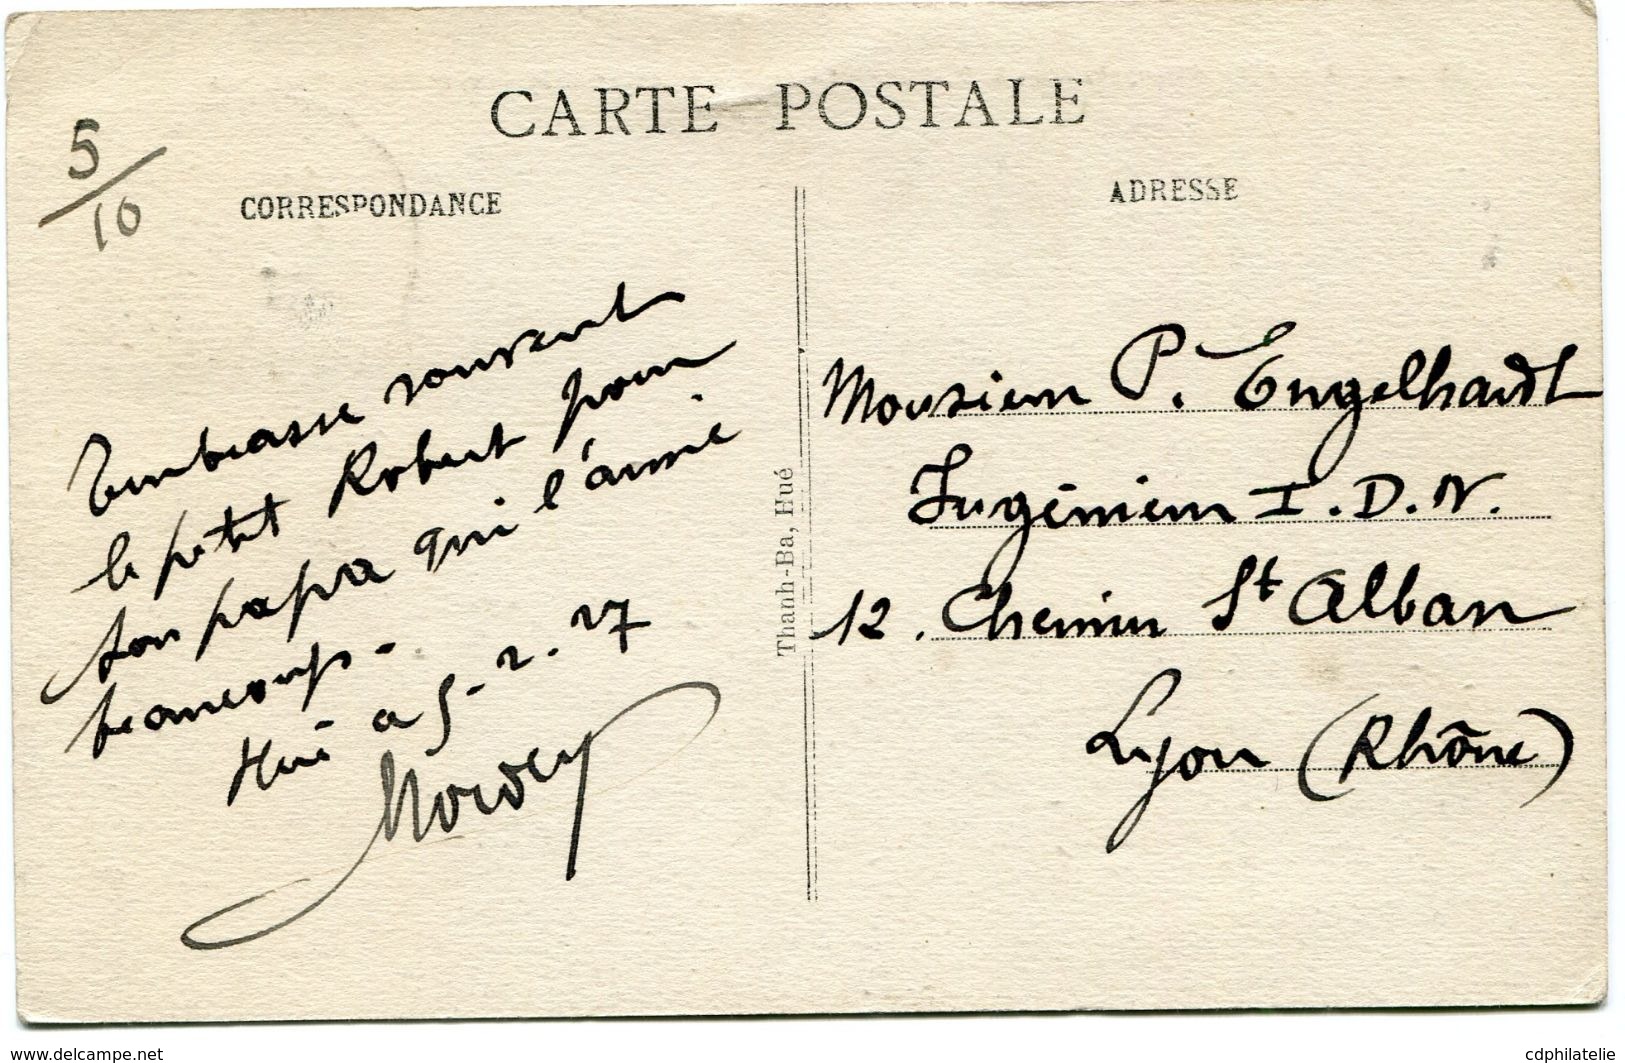 CARTE POSTALE
5/10
CORRESPONDANCE
Embrasse souvent
le petit Robert pour
son papa qui l'aime
beaucoup -
Hué a 5-2.27
ADRESSE
Monsieur P. Engelhardt
Ingénieur I.D.N.
12. Chemin St Alban
Lyon (Rhône)
Thanh-Ba, Hué
www.delcampe.net
cdphilatelie